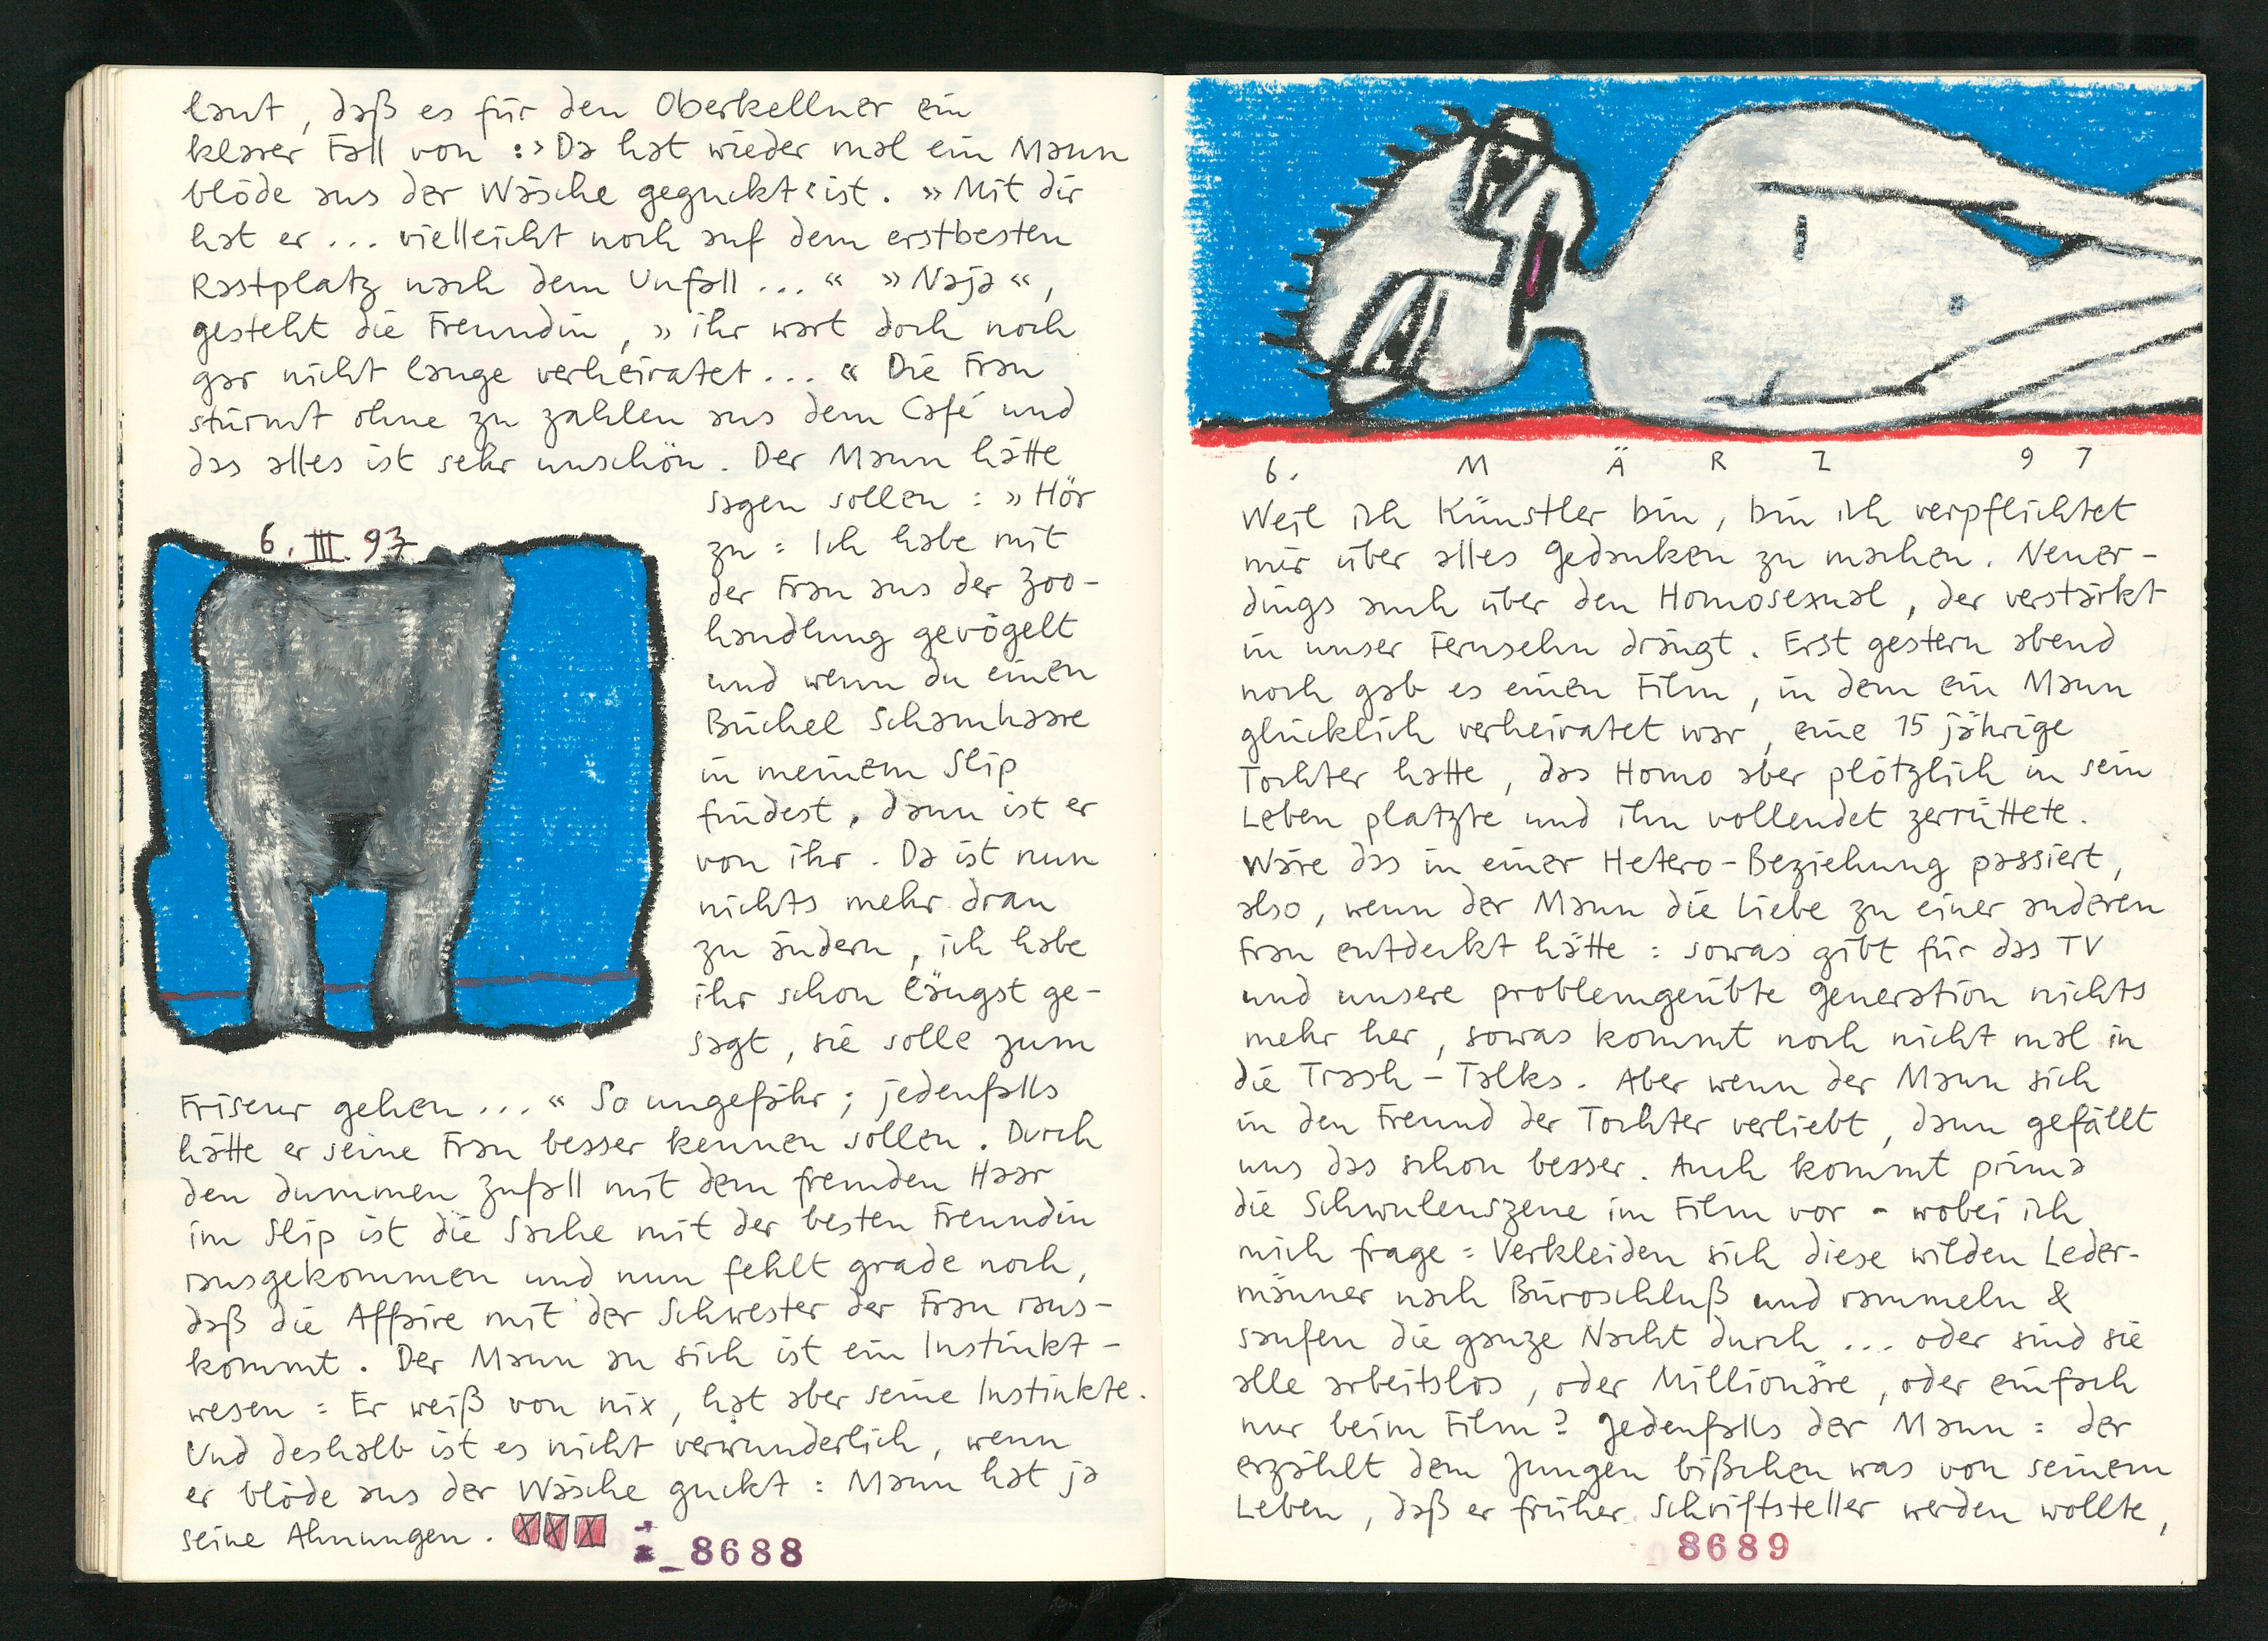 laut, daß es für den Oberkellner ein
klarer Fall von :›Da hat wieder mal ein Mann
blöde aus der Wäsche geguckt‹ ist. »Mit dir
hat er... vielleicht noch auf dem erstbesten
Rastplatz nach dem Unfall...« »Naja«,
gesteht die Freundin, »ihr wart doch noch
gar nicht lange verheiratet...« Die Frau
stürmt ohne zu zahlen aus dem Café und
das alles ist sehr unschön. Der Mann hätte
sagen sollen: »Hör
zu: Ich habe mit
der Frau aus der Zoo-
handlung gevögelt
und wenn du einen
Büchel Schamhaare
in meinem Slip
findest, dann ist er
von ihr. Da ist nun
nichts mehr dran
zu ändern, ich habe
ihr schon längst ge-
sagt, sie solle zum
6. III. 97
Friseur gehen...« So ungefähr; jedenfalls
hätte er seine Frau besser kennen sollen. Durch
den dummen Zufall mit dem fremden Haar
im Slip ist die Sache mit der besten Freundin
rausgekommen und nun fehlt grade noch,
daß die Affaire mit der Schwester der Frau raus-
kommt. Der Mann an sich ist ein Instinkt-
wesen: Er weiß von nix, hat aber seine Instinkte.
Und deshalb ist es nicht verwunderlich, wenn
er blöde aus der Wäsche guckt: Mann hat ja
seine Ahnungen. XXX
8688
6. MÄRZ 97
Weil ich Künstler bin, bin ich verpflichtet
mir über alles Gedanken zu machen. Neuer-
dings auch über den Homosexual, der verstärkt
in unser Fernsehn drängt. Erst gestern abend
noch gab es einen Film, in dem ein Mann
glücklich verheiratet war, eine 15 jährige
Tochter hatte, das Homo aber plötzlich in sein
Leben platzte und ihn vollendet zerrüttete.
Wäre das in einer Hetero-Beziehung passiert,
also, wenn der Mann die Liebe zu einer anderen
Frau entdeckt hätte: sowas gibt für das TV
und unsere problemgeübte Generation nichts
mehr her, sowas kommt noch nicht mal in
die Trash-Talks. Aber wenn der Mann sich
in den Freund der Tochter verliebt, dann gefällt
uns das schon besser. Auch kommt prima
die Schwulenszene im Film vor - wobei ich
mich frage: Verkleiden sich diese wilden Leder-
männer nach Büroschluß und rammeln &
saufen die ganze Nacht durch... oder sind sie
alle arbeitslos, oder Millionäre, oder einfach
nur beim Film? Jedenfalls der Mann: der
erzählt dem Jungen bißchen was von seinem
Leben, daß er früher Schriftsteller werden wollte,
8689